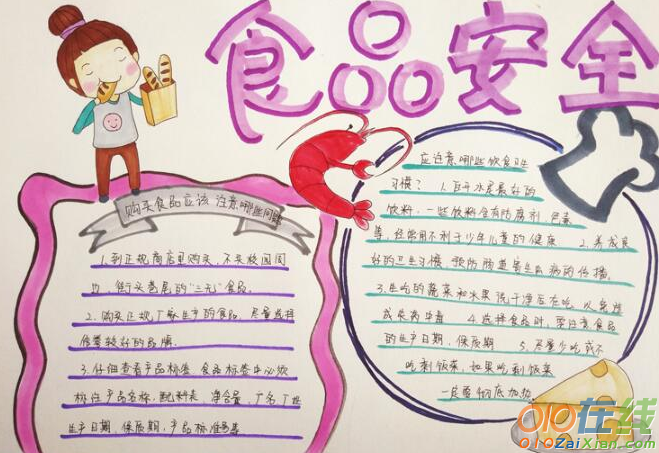 食品安全
购买食品应该注意哪些问题
1.到正规商店里购买,不买校园周
边、街头巷尾的"三无"食品.
2.购买正规厂家生产的食品,尽量选择
信誉较好的品牌.
3.仔细查看产品标签 食品标签中必须
标注产品名称,配料表,净含量,厂名厂址
生产日期,保质期,产品标准号等
应注意哪些饮食卫生
习惯? 1.白开水是最好的
饮料,一些饮料含有防腐剂、色素
等,经常用不利于少年儿童的健康 2.养成良
好的卫生习惯,预防肠道寄生虫病的传播
3.生吃的蔬菜和水果洗干净后在吃,以免造
成疾病中毒 4.选择食品时,要注意食品
的生产日期、保质期 5.尽量少吃或不
吃剩饭菜,如果吃剩饭菜
一定要彻底加热
010在线
010ZaiXian.com